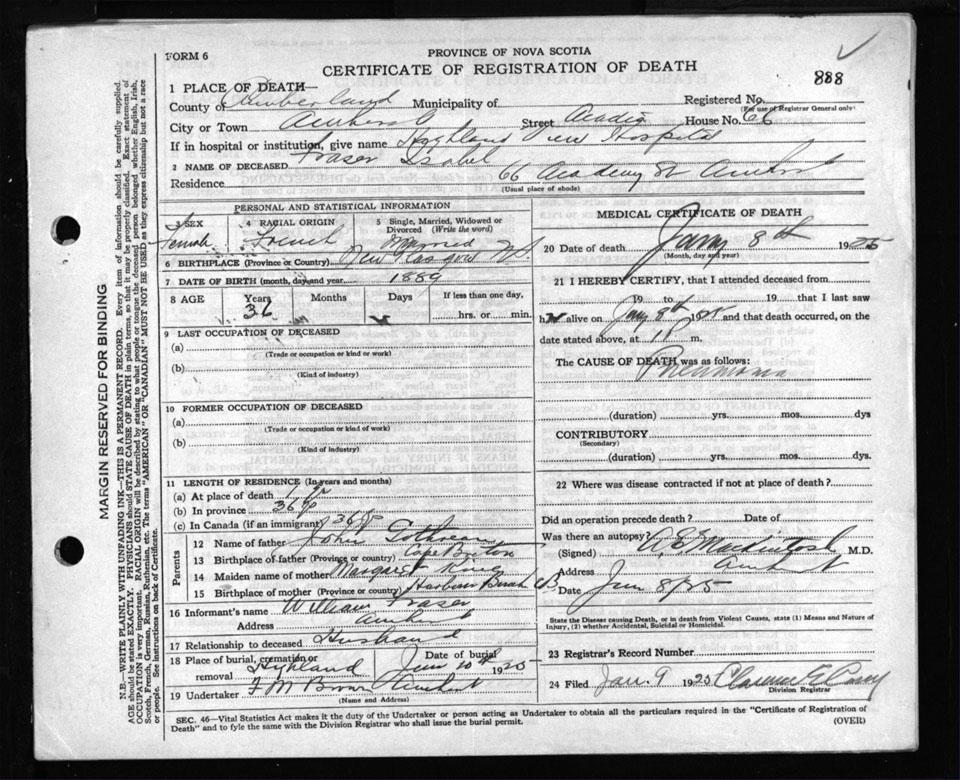 FORM 6
PROVINCE OF NOVA SCOTIA
CERTIFICATE OF REGISTRATION OF DEATH
888
1 PLACE OF DEATH—
County of Cumberland Municipality of
Registered No.
(For use of Registrar General only)
City or Town Amherst Street Acadia House No. 66
If in hospital or institution, give name Highland View Hospital
2 NAME OF DECEASED Fraser Isabel
Residence 66 Academy St Amherst
(Usual place of abode)
PERSONAL AND STATISTICAL INFORMATION
3 SEX 4 RACIAL ORIGIN 5 Single, Married, Widowed or Divorced (Write the word)
Female French Married
6 BIRTHPLACE (Province or Country) New Glasgow N.S.
7 DATE OF BIRTH (month, day, and year) 1889
8 AGE Years Months Days If less than one day,
36 hrs. or min.
9 LAST OCCUPATION OF DECEASED
(a)
(Trade or occupation or kind or work)
(b)
(Kind of industry)
10 FORMER OCCUPATION OF DECEASED
(a)
(Trade or occupation or kind of work)
(b)
(Kind of industry)
11 LENGTH OF RESIDENCE (In years and months)
(a) At place of death 1 yr
(b) In province 36 yr
(c) In Canada (if an immigrant) 36 yr
Parents
12 Name of father John
13 Birthplace of father (Province or country) Cape Breton
14 Maiden name of mother Margaret King
15 Birthplace of mother (Province or country) Harbour Bush C.B.
16 Informant's name William Fraser
Address Amherst
17 Relationship to deceased Husband
18 Place of burial, cremation or removal Highland Date of burial Jan 10th 1925
19 Undertaker F M Brown Amherst
(Name and Address)
MEDICAL CERTIFICATE OF DEATH
20 Date of death Jany 8th 1925
(Month, day and year)
21 I HEREBY CERTIFY, that I attended deceased from
19 to 19 that I last saw
her alive on Jany 8th 1925 and that death occurred, on
date stated above, at 11 P m.
The CAUSE OF DEATH was as follows:
Pneumonia
(duration) yrs. mos. dys
CONTRIBUTORY
(Secondary)
(duration) yrs. mos. dys
22 Where was disease contracted if not at place of death?
Did an operation precede death? Date of
Was there an autopsy?
(Signed) A. E. Mackintosh M.D.
Address Amherst
Date Jan 8/25
State the Disease causing Death, or in death from Violent Causes, state (1) Means and Nature of
Injury, (2) whether Accidental, Suicidal or Homicidal.
23 Registrar's Record Number
24 Filed Jan. 9 1925 Clarence E Casey
Division Registrar
SEC. 46—Vital Statistics Act makes it the duty of the Undertaker or person acting as Undertaker to obtain all the particulars required in the "Certificate of Registration of
Death" and to fyle the same with the Division Registrar who shall issue the burial permit.
(OVER)
MARGIN RESERVED FOR BINDING
N.B.—WRITE PLAINLY WITH UNFADING INK—THIS IS A PERMANENT RECORD. Every item of information should be carefully supplied.
AGE should be stated EXACTLY. PHYSICIANS should STATE CAUSE OF DEATH in plain terms, so that it may be properly classified. Exact statement of
OCCUPATION is very important. RACIAL ORIGIN will be described by stating to what people or tongue the deceased person belonged whether English, Irish,
Scotch, French, German, Russian, Ruthenian, etc. The terms "AMERICAN" OR "CANADIAN" MUST NOT BE USED as they express citizenship but not a race
or people. See instructions on back of Certificate.